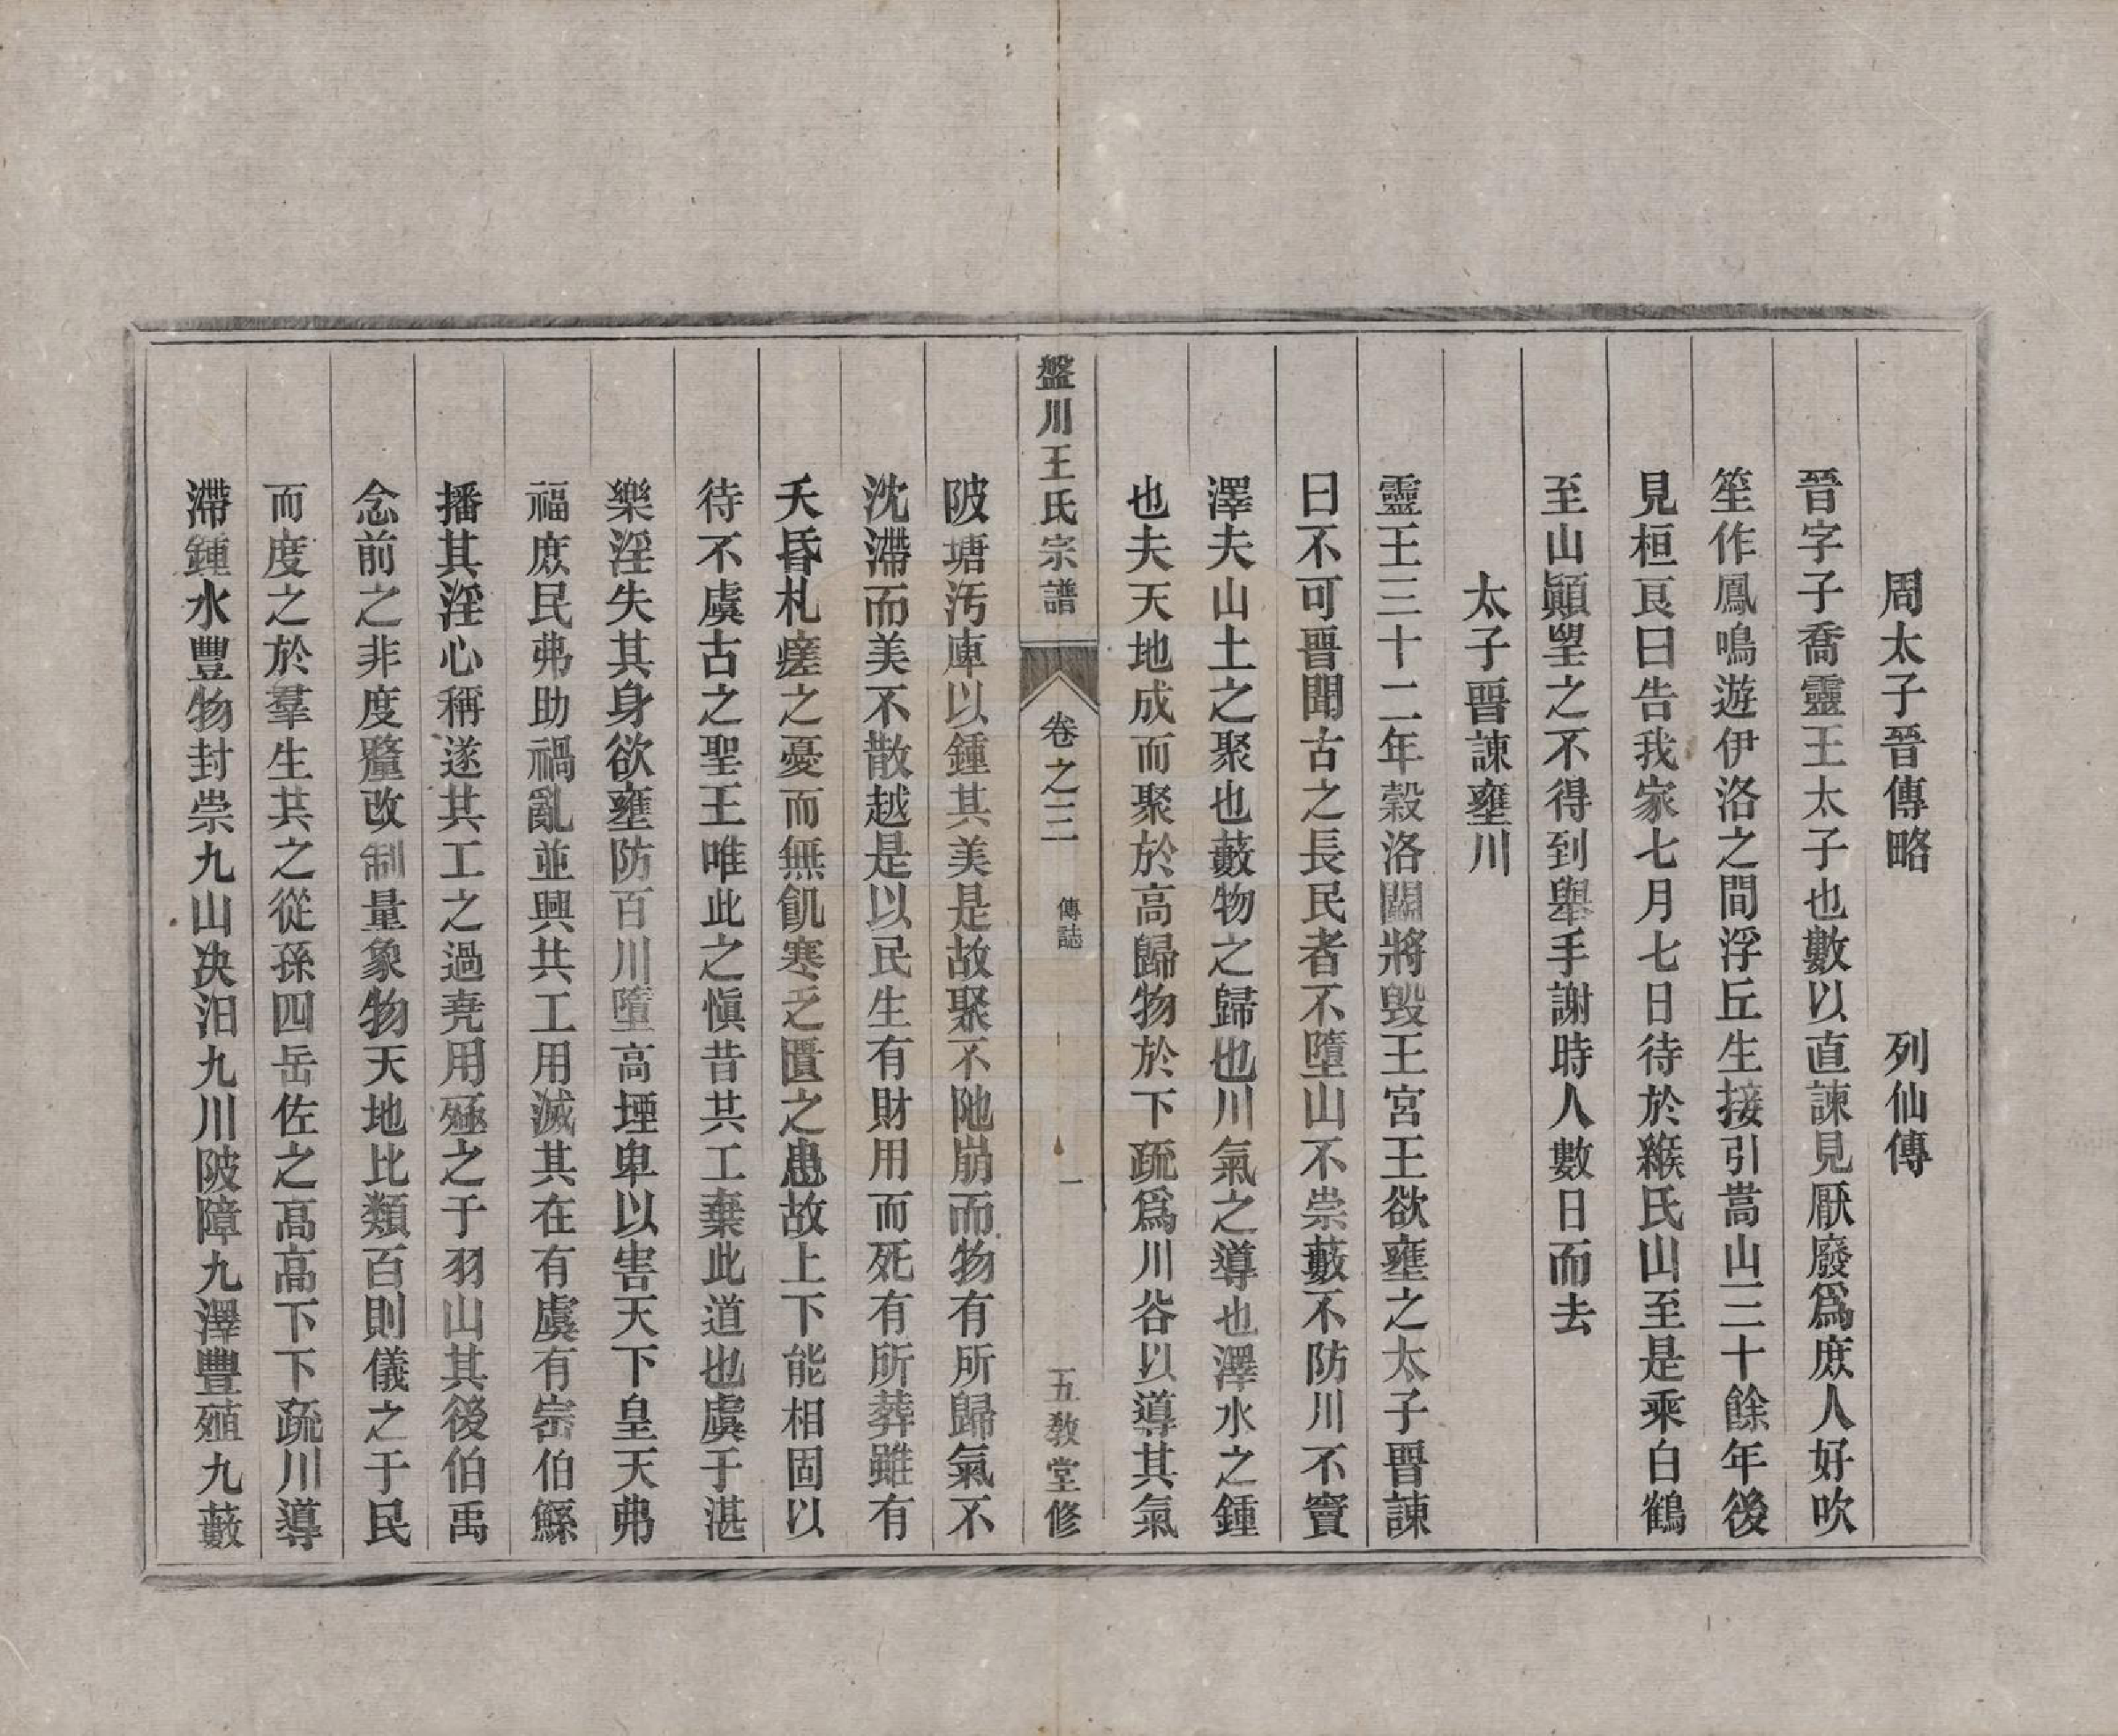 周太子晉傳略　列仙傳
晉字子喬靈王太子也數以直諫見厭廢爲庶人好吹
笙作鳳鳴遊伊洛之間浮丘生接引嵩山三十餘年後
見桓良曰告我家七月七日待於緱氏山至是乘白鶴
至山顚望之不得到舉手謝時人數日而去
太子晋諫壅川
靈王三十二年榖洛鬬將毀王宮王欲壅之太子晋諫
曰不可晋聞古之長民者不墮山不崇藪不防川不竇
澤夫山土之聚也藪物之歸也川氣之導也澤水之鍾
也夫天地成而聚於高歸物於下疏爲川谷以導其氣
盤川王氏宗譜　卷之三　傳誌　一　五教堂修
陂塘汚庳以鍾其美是故聚不阤崩而物有所歸氣不
沈滯而美不散越是以民生有財用而死有所葬雖有
夭昏札瘥之憂而無飢寒乏匱之患故上下能相固以
待不虞古之聖王唯此之愼昔共工棄此道也虞于湛
樂淫失其身欲壅防百川墮高堙卑以害天下皇天弗
福庶民弗助禍亂並興共工用滅其在有虞有崇伯鯀
播其淫心稱遂共工之過堯用殛之于羽山其後伯禹
念前之非度釐改制量象物天地比類百則儀之于民
而度之於羣生共之從孫四岳佐之高高下下疏川導
滯鍾水豐物封崇九山决汨九川陂障九澤豐殖九藪